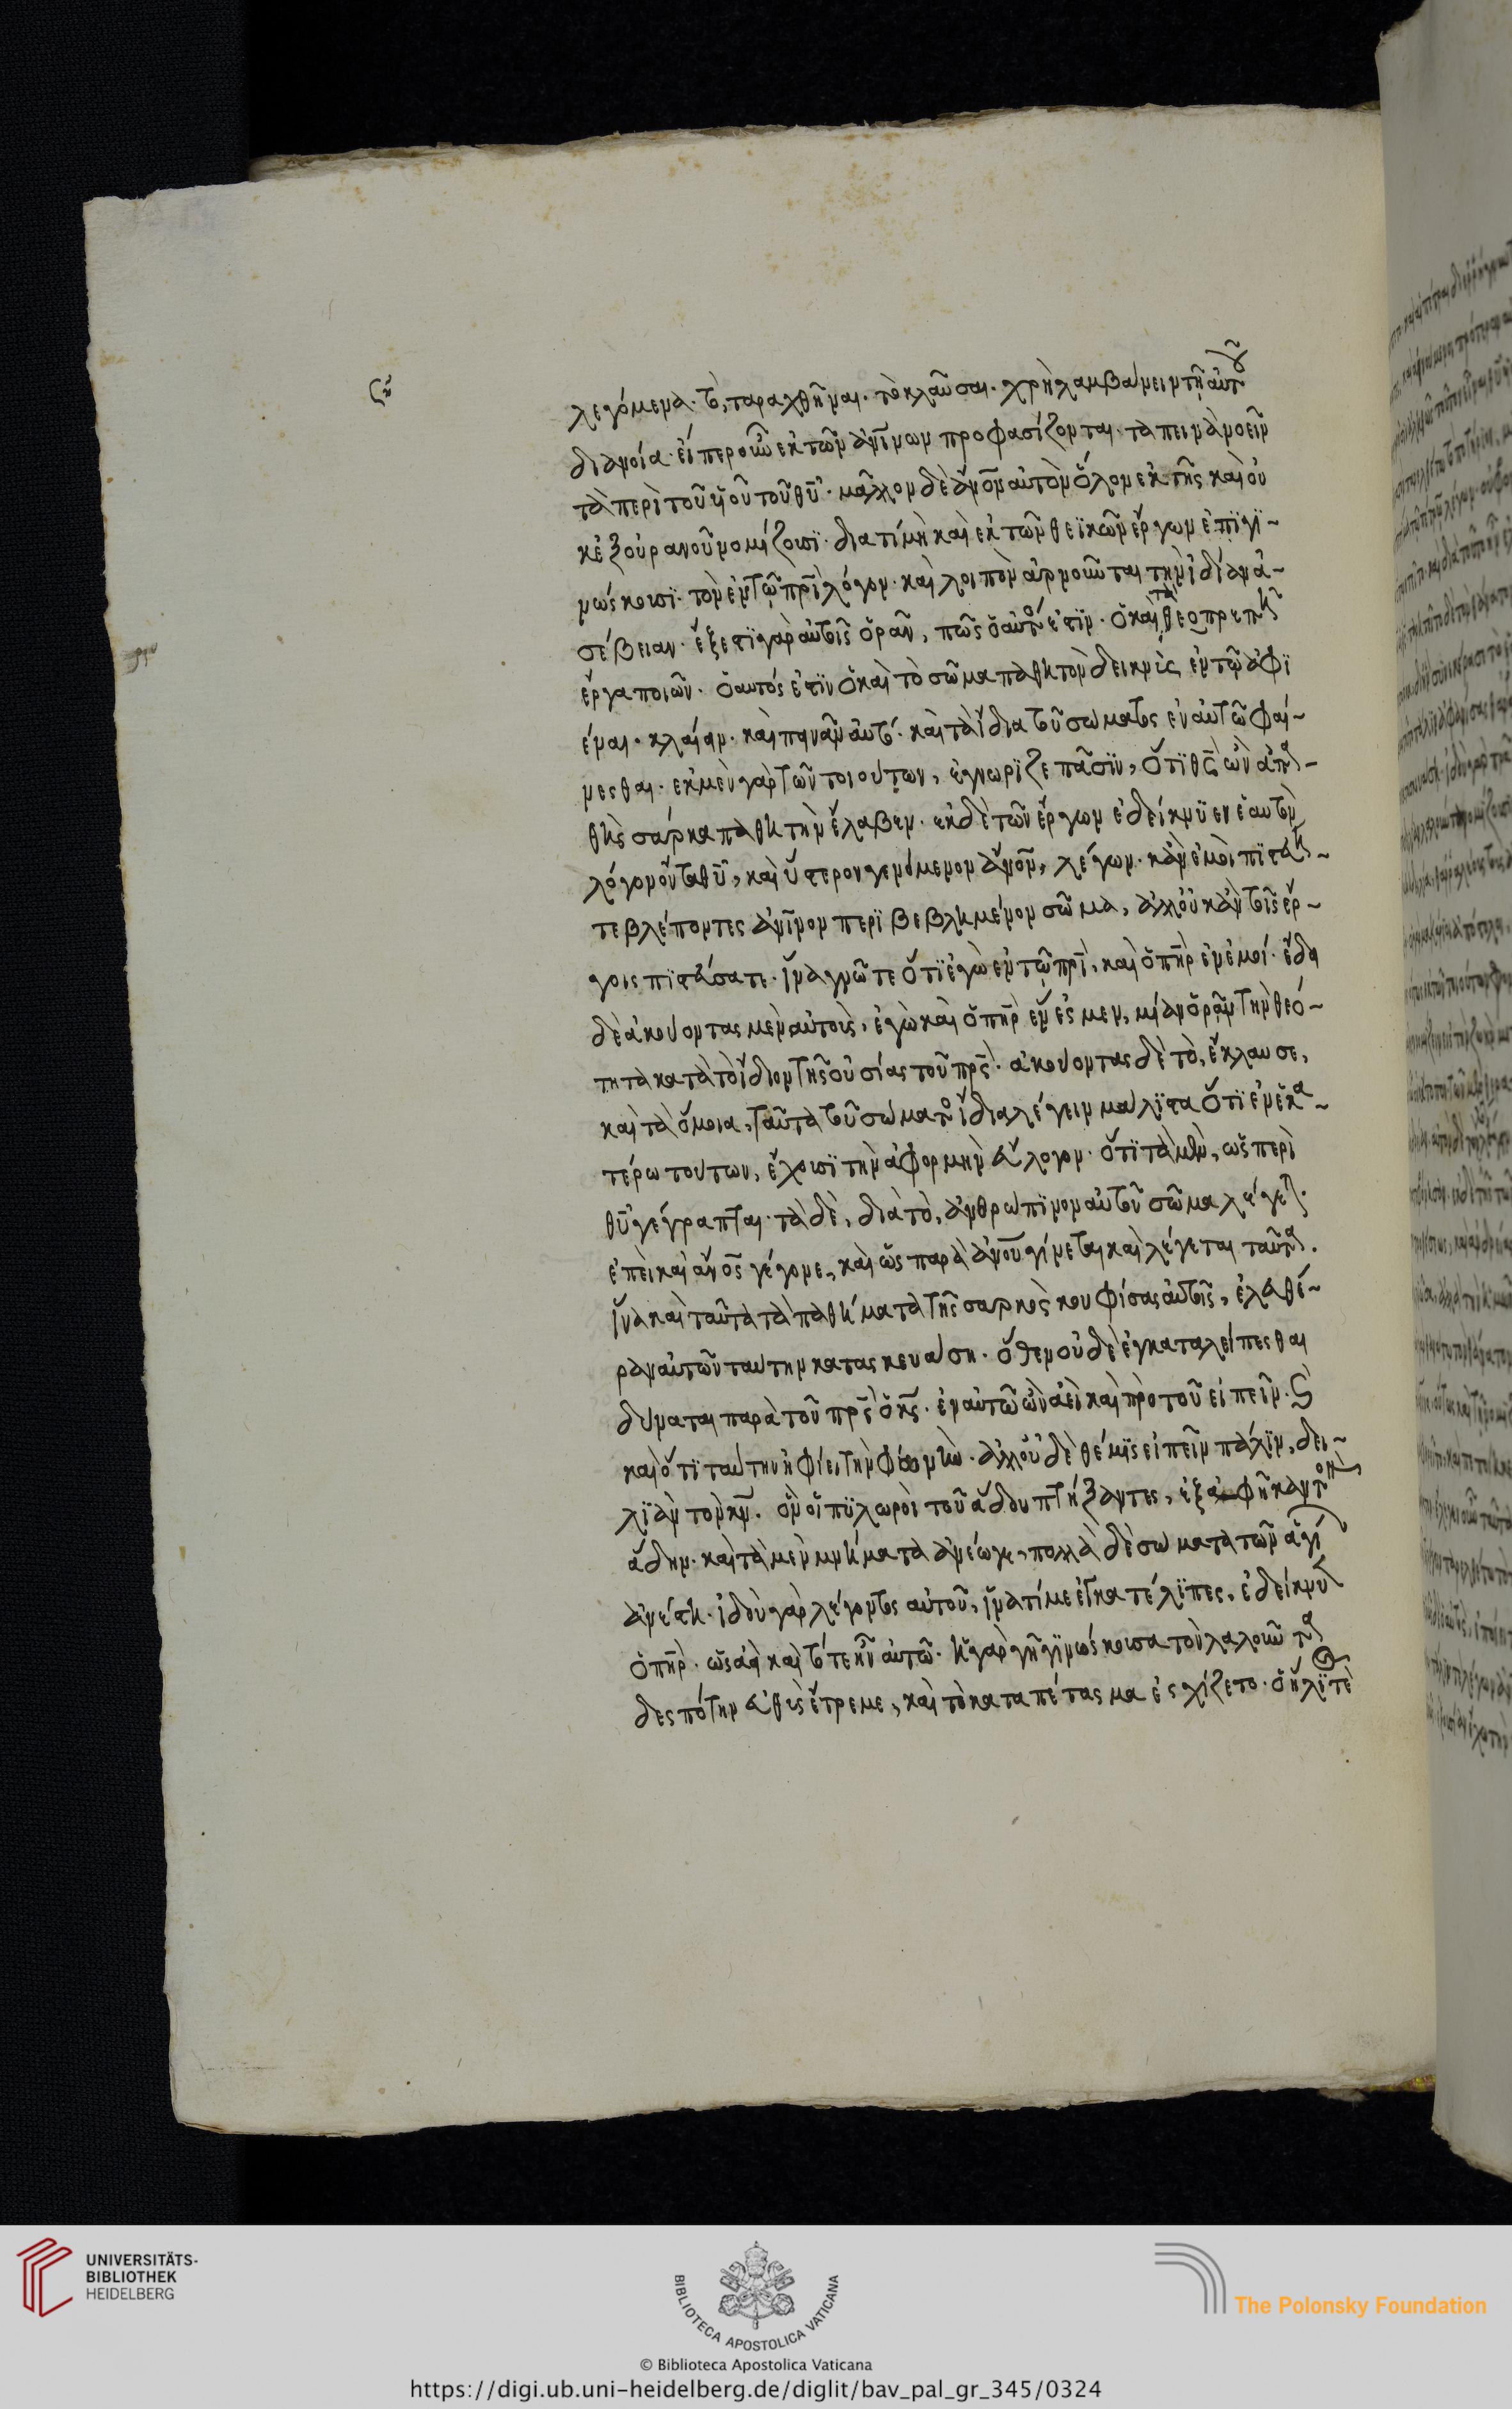 λεγόμενα. τὸ, ταραχθῆναι. τὸ κλαῦσαι. χρὴ λαμβάνειν τῆ αὐτῶν
διανοία. εἴπερ οὖν ἐκ τῶν ἀνίνων προφασίζονται ταπεινὰ νοεῖν
τὰ περὶ τοῦ υἱοῦ τοῦ θῦ. μᾶλλον δὲ ἄνον αὐτὸν ὅλον ἐκ γῆς καὶ οὐ
κ ἐξ οὐρανοῦ νομίζουσι. διατί μὴ καὶ ἐκ τῶν θεϊκῶν ἔργων ἐπιγι~
νώσκουσι. τὸν ἐν τῶ πρι λόγον. καὶ λοιπὸν ἀρνοῦνται τὴν ἰδίαν ἀ~
σέβειαν. ἔξεστι γὰρ αὐτοῖς ὁρᾶν, πῶς ὁ αὐτός ἐστιν. ὁ καὶ τὰ θεοπρεπῆ
ἔργα ποιῶν. ὁ αυτός ἐστιν ὁ καὶ τὸ σῶμα παθητὸν δεικνὺς ἐν τῶ ἀφι
έναι. κλαίειν. καὶ πεινᾶν αὐτό. καὶ τὰ ἴδια τοῦ σώματος ἐν αὐτῶ φαί~
νεσθαι. ἐκ μὲν γὰρ τῶν τοιούτων, ἐγνωρίζε πᾶσιν, ὅτι θς ὢν ἀπα~
θὴς σάρκα παθητὴν ἔλαβεν. ἐκ δὲ τῶν ἔργων ἐδείκνυεν ἑαυτὸν
λόγον ὄντα θῦ, καὶ ὕστερον γενόμενον ἄνον, λέγων. κἂν ἐμοὶ πιστεύη~
τε βλέποντες ἀνινον περιβεβλημένον σῶμα, ἀλλ' οὖν κἂν τοῖς ἔρ~
γοις πιστεύσατε. ἵνα γνῶτε ὅτι ἐγὼ ἐν τῶ πρι, καὶ ὁ πηρ ἐν ἐμοί. ἔδει
δὲ ἀκούοντας μὲν αὐτοὺς, ἐγὼ καὶ ὁ πηρ ἕν ἐσμεν, μίαν ὁρᾶν τὴν θεό~
τητα κατὰ τὸ ἴδιον τῆς οὐσίας τοῦ πρς. ἀκούοντας δὲ τὸ, ἔκλαυσε,
καὶ τὰ ὅμοια, ταῦτα τοῦ σώματος ἴδια λέγειν μάλιστα ὅτι ἐν ἑκα~
τέρω τούτων, ἔχουσι τὴν ἀφορμὴν εὔλογον. ὅτι τὰ μὲν, ὡς περὶ
θῦ γέγραπται. τὰ δὲ, διὰ τὸ, ἀνθρώπινον αὐτοῦ σῶμα λέγεται.
ἐπεὶ καὶ ἄνος γέγονε, καὶ ὡς παρὰ ἀνου γίνεται καὶ λέγεται ταῦτα.
ἵνα καὶ ταῦτα τὰ παθήματα τῆς σαρκὸς κουφίσας αὐτοῖς, ἐλευθέ~
ραν αὐτῶν ταύτην κατασκευάση. ὅθεν οὐδὲ ἐγκαταλείπεσθαι
δύναται παρὰ τοῦ πρς ὁ κς. ἐν αὐτῶ ὢν ἀεὶ καὶ πρὸ τοῦ εἰπεῖν.
καὶ ὅτι ταύτην ἠφίει τὴν φωνήν. ἀλλ' οὐδὲ θέμις εἰπεῖν πάλιν, δει~
λιᾶν τὸν κν. ὃν οἱ πυλωροὶ τοῦ ἄδου πτήξαντες, ἐξαφῆκαν τὸν
ἄδην. καὶ τὰ μὲν μνήματα ἀνέωγε, πολλὰ δὲ σώματα τῶν ἁγίων
ἀνέστη. ἰδοὺ γὰρ λέγοντος αὐτοῦ, ἵνα τί με ἐγκατέλιπες, ἐδείκνυεν
ὁ πηρ. ὡς ἀεὶ καὶ τότε ἦν αὐτῶ. ἡ γὰρ γῆ γινώσκουσα τὸν λαλοῦντα
δεσπότην εὐθὺς ἔτρεμε, καὶ τὸ καταπέτασμα ἐσχίζετο. ὁ ἥλιός τε
UNIVERSITÄTS-
BIBLIOTHEK
HEIDELBERG
BIBLIOTECA APOSTOLICA VATICANA
The Polonsky Foundation
© Biblioteca Apostolica Vaticana
https://digi.ub.uni-heidelberg.de/diglit/bav_pal_gr_345/0324